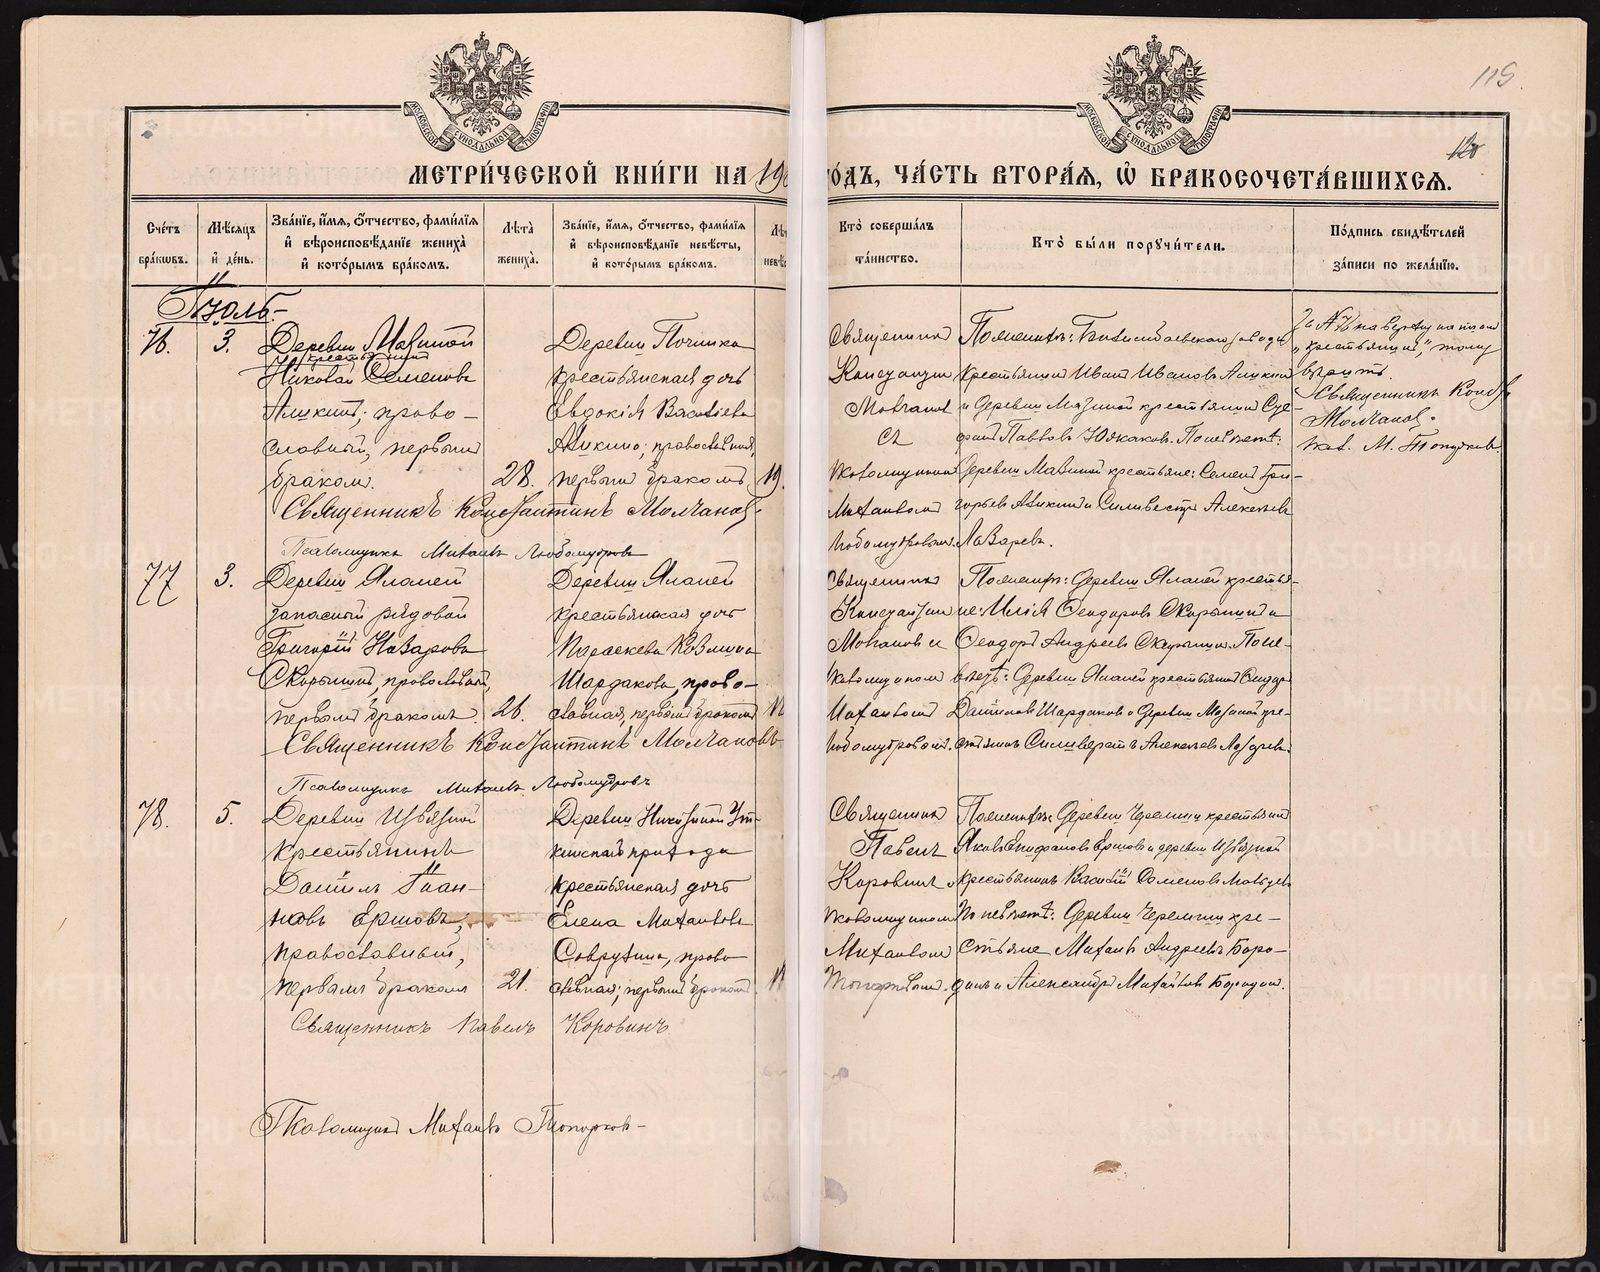 119
120
МОСКОВСКОЙ СѴНОДАЛЬНОЙ ТИПОГРАФІИ
МОСКОВСКОЙ СѴНОДАЛЬНОЙ ТИПОГРАФІИ
МЕТРИ́ЧЕСКОЙ КНИ́ГИ НА 190
О́ДЪ, ЧА́СТЬ ВТОРА́Я, Ѽ БРАКОСОЧЕТА́ВШИХСѦ.
Сче́тъ
бра́кѡвъ.
Мѣ́сѧцъ
и҆ де́нь.
Зва́нїе, и҆́мѧ, ѻ҆́тчество, фами́лїѧ
и҆ вѣроисповѣ́данїе жениха̀
и҆ кото́рымъ бра́комъ.
Лѣ́та
жениха̀.
Зва́нїе, и҆́мѧ, ѻ҆́тчество, фами́лїѧ
и҆ вѣроисповѣ́данїе невѣ́сты,
и҆ кото́рымъ бра́комъ.
Кто̀ соверша́лъ
та́инство.
Кто̀ бы́ли порꙋчи́тели.
По́дпись свидѣ́телей
за́писи по жела́нїю.
Іюль.
76.
3.
Деревни Мазиной
крестьянинъ
Николай Семеновъ
Аликинъ; право-
славный, первымъ
бракомъ.
28.
Деревни Починка
крестьянская дочь
Евдокія Васильева
Аликина; православная,
первымъ бракомъ
19.
Священникъ
Константинъ
Молчановъ
съ
псаломщикомъ
Михаиломъ
Любомудровымъ.
крестьянинъ Иванъ Ивановъ Аликинъ
и деревни Мазиной крестьянинъ
Павловъ Южаковъ. По невѣстѣ:
деревни Мазиной крестьяне: Семенъ Гри-
горьевъ Аликинъ и Сильвестръ Алексѣевъ
Лазаревъ.
"крестьянинъ", тому
вѣрить.
Священникъ Конст.
Молчановъ.
Пс. М. Топорковъ.
Священникъ Константинъ Молчановъ.
Псаломщикъ Михаилъ Любомудровъ
77
3.
Деревни Яланей
запасный рядовой
Григорій Назаровъ
Скорынинъ, православный,
первымъ бракомъ.
26.
Деревни Яланей
крестьянская дочь
Параскева Козмина
Шардакова, право-
славная, первымъ бракомъ
Священникъ
Константинъ
Молчановъ и
псаломщикомъ
Михаиломъ
Любомудровымъ.
По женихѣ: деревни Яланей крестья-
не: Илія Ѳеодоровъ Скорынинъ и
Ѳеодоръ Андреевъ Скорынинъ. По не-
вѣстѣ: деревни Яланей крестьянинъ
Даніиловъ Шардаковъ и деревни Мазиной кре-
стьянинъ Сильвестръ Алексѣевъ Лазаревъ.
Священникъ Константинъ Молчановъ
Псаломщикъ Михаилъ Любомудровъ
78.
5.
Деревни
крестьянинъ
Даніилъ Іоан-
новъ Ершовъ,
православный,
первымъ бракомъ
21.
прихода
крестьянская дочь
Елена Михаилова
право-
славная; первымъ бракомъ
Священникъ
Павелъ
Коровинъ съ
псаломщикомъ
Михаиломъ
Топорковымъ.
По женихѣ: деревни Черемши крестьянинъ
Яковъ Епифановъ Ершовъ и деревни
крестьянинъ Василій Семеновъ
По невѣстѣ: деревни Черемши кре-
стьяне Михаилъ Андреевъ Боро-
динъ и Александръ Михайловъ Бородинъ.
Священникъ Павелъ Коровинъ
Псаломщикъ Михаилъ Топорковъ
METRIKI.GASO-URAL.RU